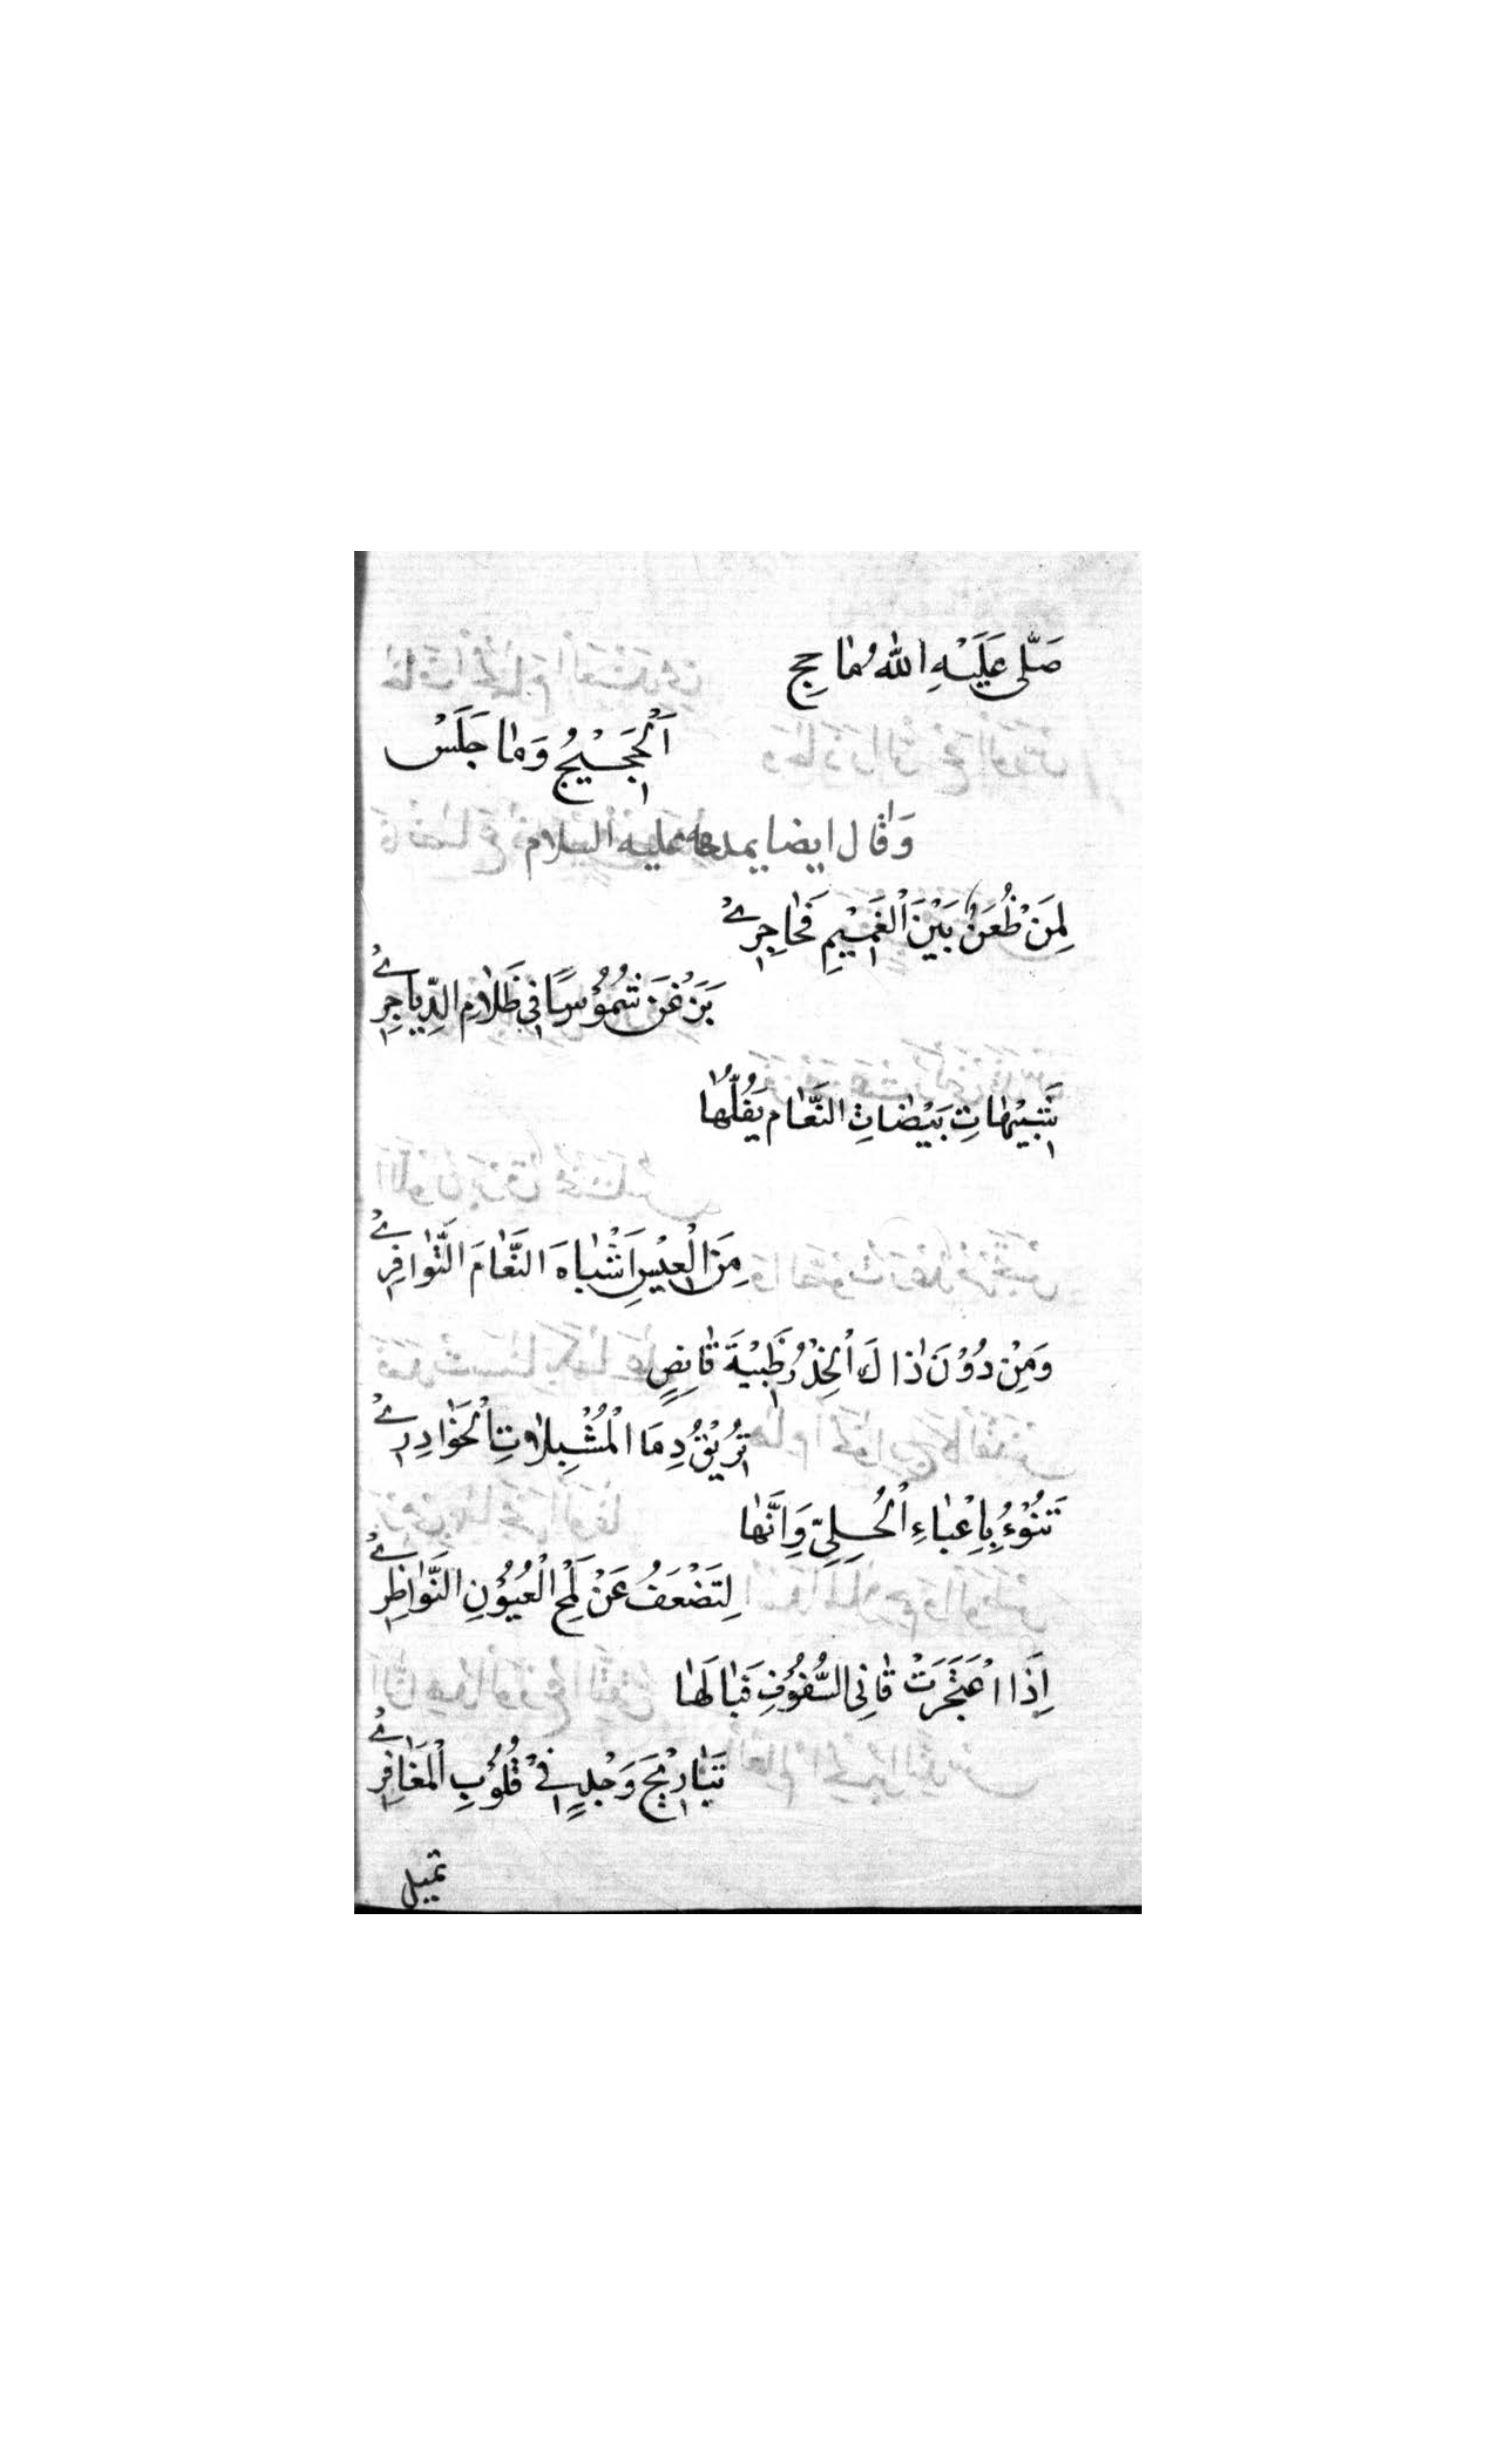 صَلَّى عَلَيْهِ اللّٰهُ مٰا حِجِ
اَلْحَجِيْجُ وَمٰا جَلَسْ
وَقٰال ايضا يمدحه عليه السلام
لِمَنْ ظُعَنٌ بَيْنَ الْغَمِيْمِ فَحٰاجِرِ
بَزَغْنَ شُمُوْسًا فِي ظَلٰامِ الدِّيٰاجِرِ
شَبِيْهٰاتِ بَيْضٰاتِ النَّعٰام يَقُلُّهٰا
مِنَ الْعِيْسِ اَشْبٰاهَ النَّعٰامَ النَّوٰافِرِ
وَمِنْ دُوْنَ ذٰا لَ الْخِدْرُ ظَبْيَةَ قٰانِصٍ
تُرِيْقُ دِمَا الْمُشْبِلٰاتِ الْخَوٰادِرِ
تَنُوْءُ بِاِعْبٰاءِ الْحُلِيِّ وَاِنَّهٰا
لِتَضْعَفُ عَنْ لَمْحِ الْعُيُوْنِ النَّوٰاظِرِ
اِذَا اعْتَجَرَتْ قٰانِى السُّفُوْفِ فَيٰا لَهٰا
تَبٰارِيْحَ وَجْدٍ فِيْ قُلُوْبِ الْمَغٰافِرِ
تميل